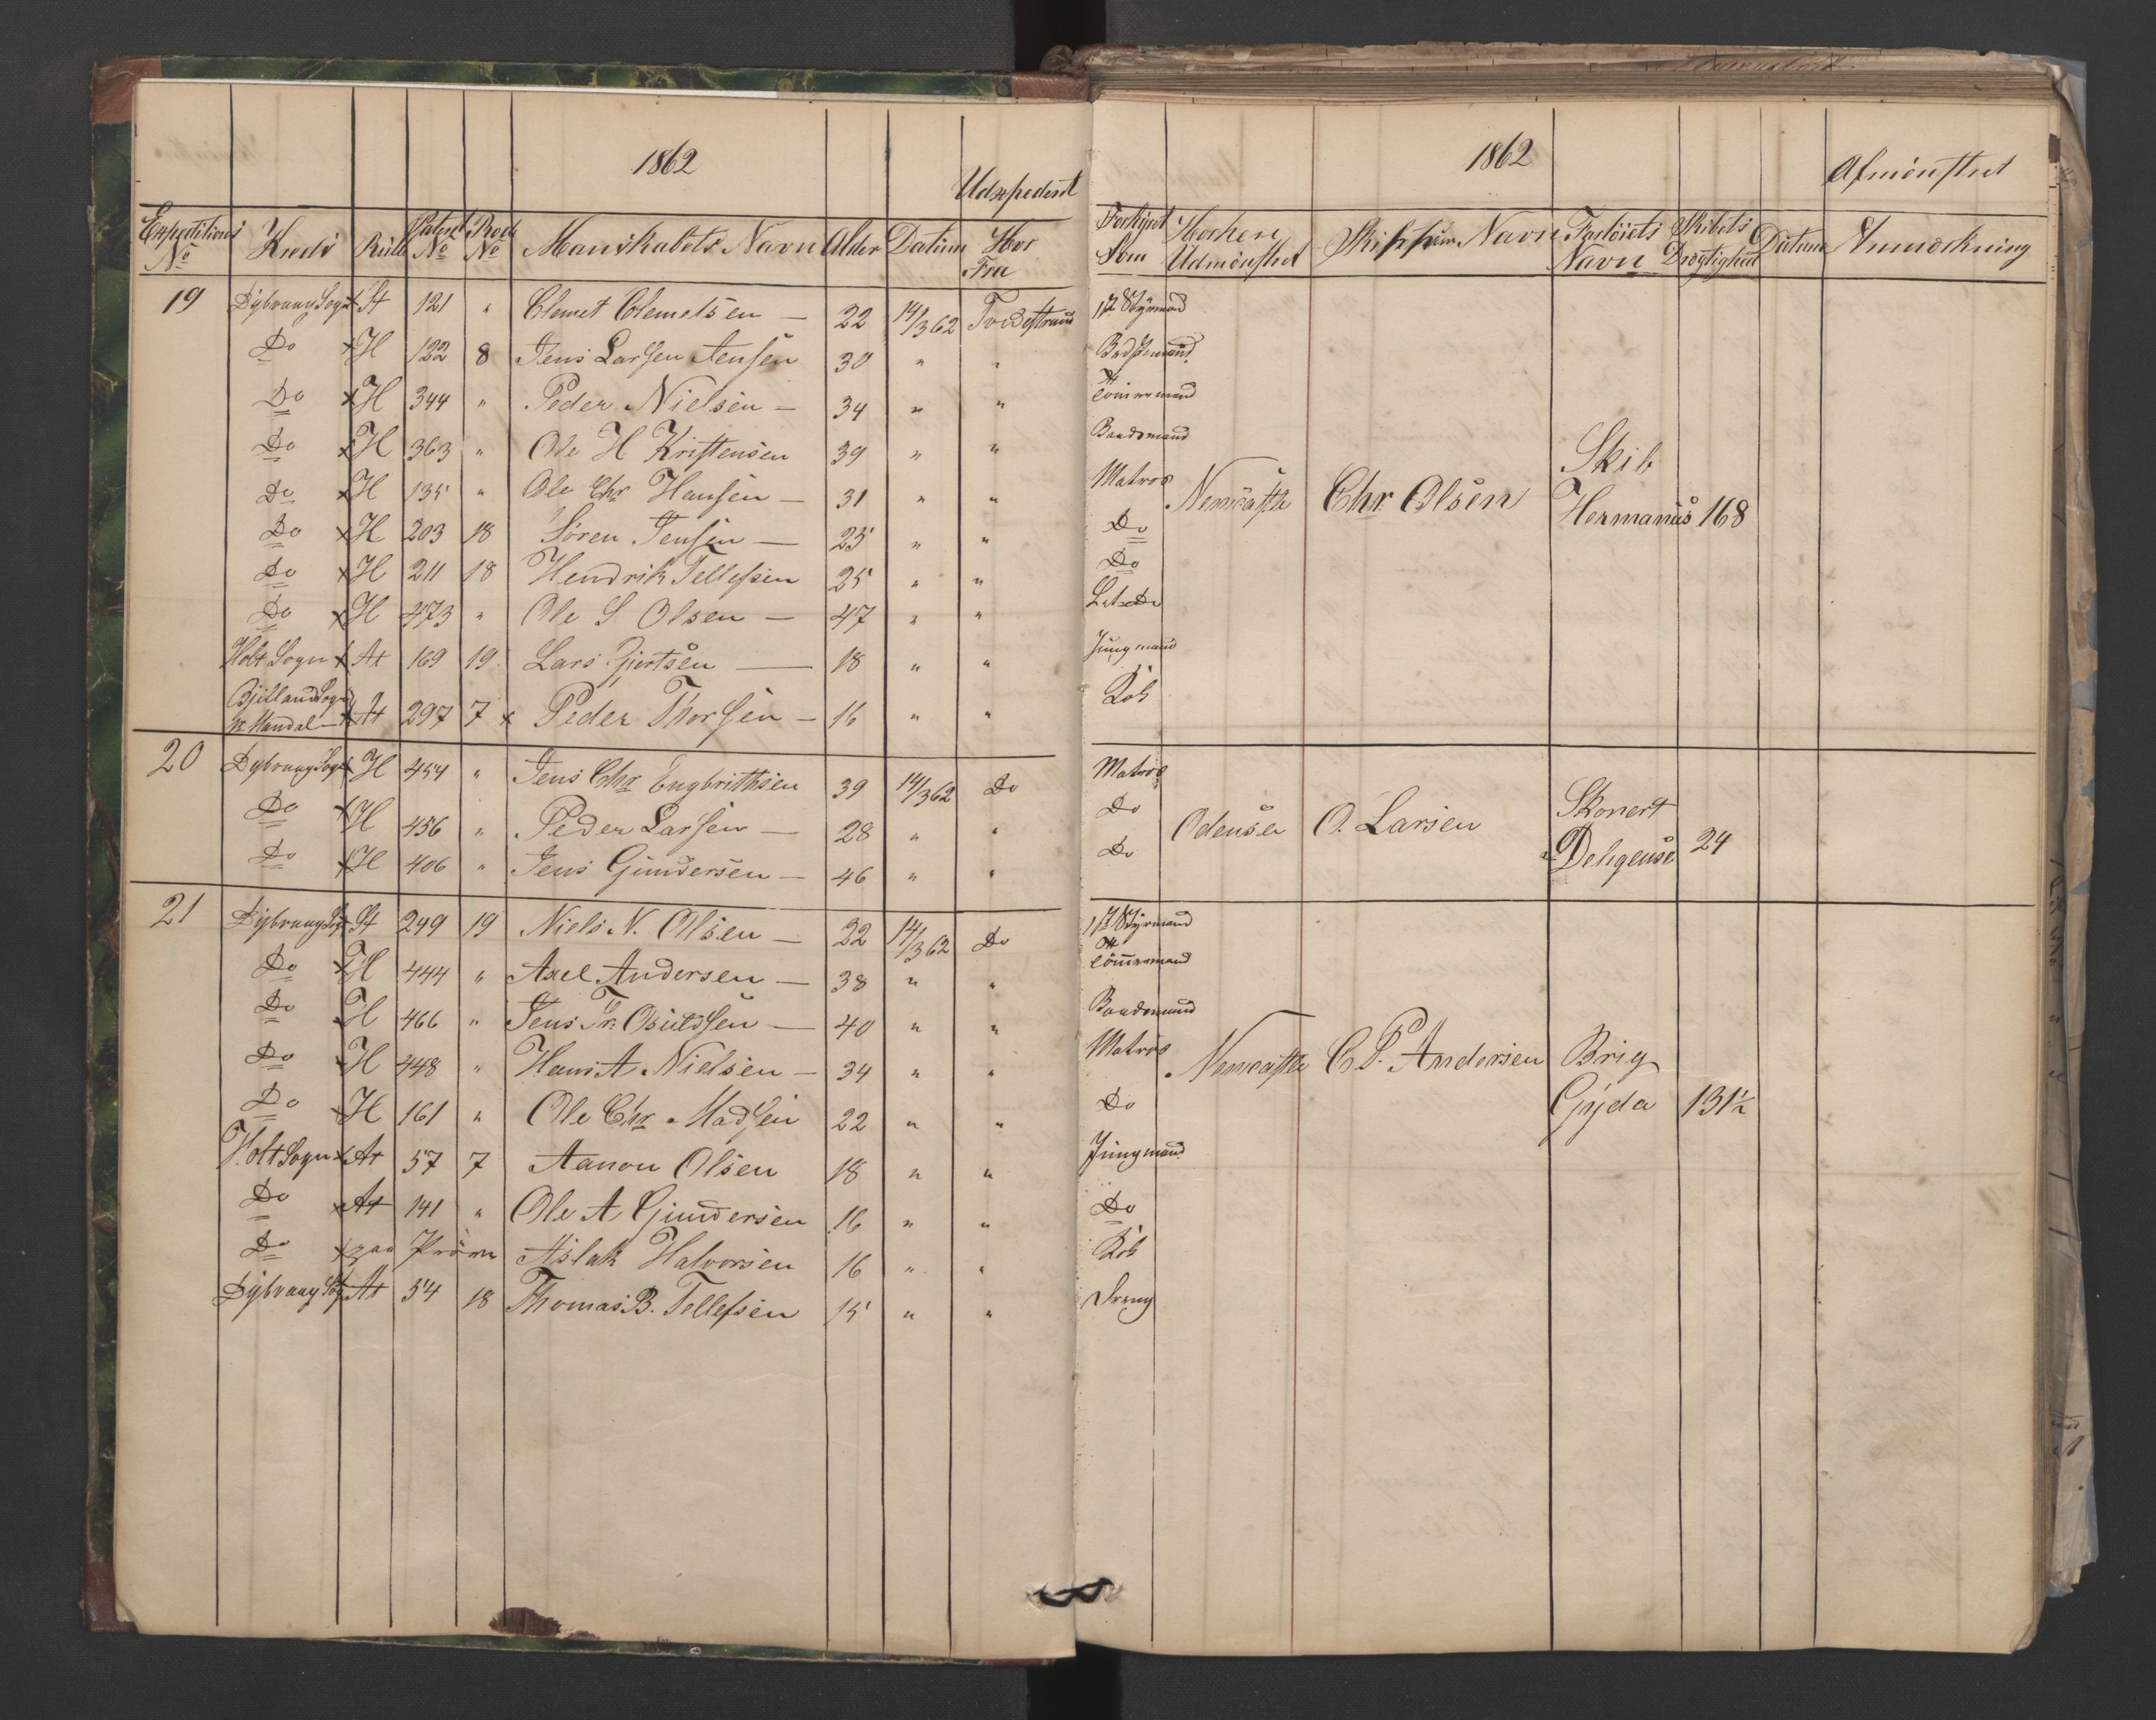 1862
Udexpederet
Expeditions No Kreds Rulle Patent No Rode No Mandskabets Navn Alder Datum Hvor Fra
19 Dybvaag Sogn x St 121 " Clemet Clemetsen — 22 14/3 62 Tvedestrand
Do x H 122 8 Jens Larsen Jensen 30 " "
Do x H 344 " Peder Nielsen — 34 " "
Do x H 363 " Ole H Kristensen 39 " "
Do x H 135 " Ole Chr Hansen — 31 " "
Do x H 203 18 Søren Jensen — 25 " "
Do x H 211 18 Hendrik Tellefsen 25 " "
Do x H 473 " Ole S. Olsen — 47 " "
Holt Sogn x At 169 19 Lars Gjertsen — 18 " "
Bjelland Sogn
Mandal — x At 297 7 x Peder Thorsen — 16 " "
20 Dybvaag Sogn x H 454 " Jens Chr Engbrithsen 39 14/3 62 Do
Do x H 456 " Peder Larsen — 28 " "
Do x H 406 " Jens Gundersen — 46 " "
21 Dybvaag Sog x St 249 19 Niels N. Olsen — 22 14/3 62 Do
Do x H 444 " Axel Andersen — 38 " "
Do x H 466 " Jens Tr. — 40 " "
Do H 448 " Hans A Nielsen — 34 " "
Do H 161 " Ole Chr Madsen 22 " "
Holt Sogn x At 57 7 Aanon Olsen 18 " "
Do x At 141 " Ole A Gundersen 16 " "
Do x paa Prøve Aslak Halvorsen 16 " "
Dybvaag Sog At 54 18 Thomas B. Tellefsen 15 " "
1862
Afmönstret
Forhyret Som Hvorhen Udmönstret Skippern Navn Fartöiets Navn Skibets Drægtighed Datum Anmærkning
1st Styrmand
Baadsmand
Tömmermand
Baadsmand
Matros Newcastle Chr. Olsen Skib Hermanus 168
Do
Do
Jungmand
Kok
Matros
Do Odense O. Larsen Skonert Deligense 24
Do
1st Styrmand
Tömmermand
Baadsmand
Matros Newcastle C P. Andersen Brig Gyda 131½
Do
Jungmand
Do
Kok
Dreng